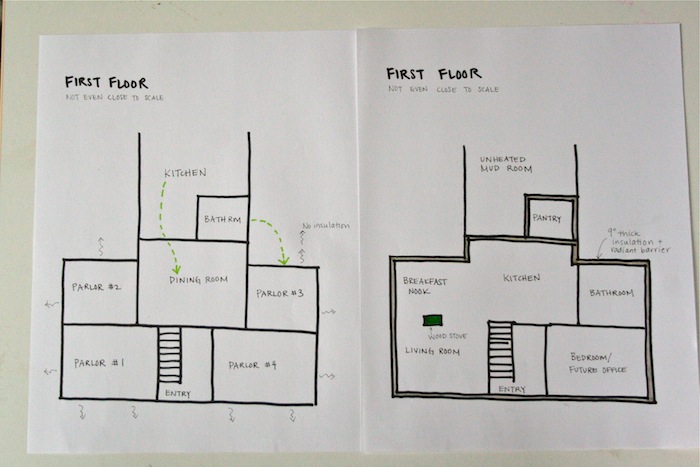 FIRST FLOOR
NOT EVEN CLOSE TO SCALE
KITCHEN
BATHRM
No insulation
PARLOR #2
DINING ROOM
PARLOR #3
PARLOR #1
PARLOR #4
ENTRY
FIRST FLOOR
NOT EVEN CLOSE TO SCALE
UNHEATED
MUD ROOM
PANTRY
9" thick
insulation +
radiant barrier
BREAKFAST
NOOK
KITCHEN
BATHROOM
WOOD STOVE
LIVING ROOM
BEDROOM/
FUTURE OFFICE
ENTRY